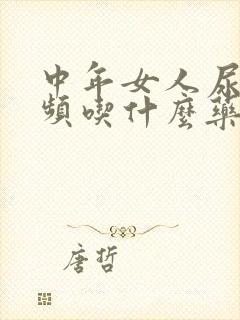 中年女人尿
頻喫什麼藥
唐哲